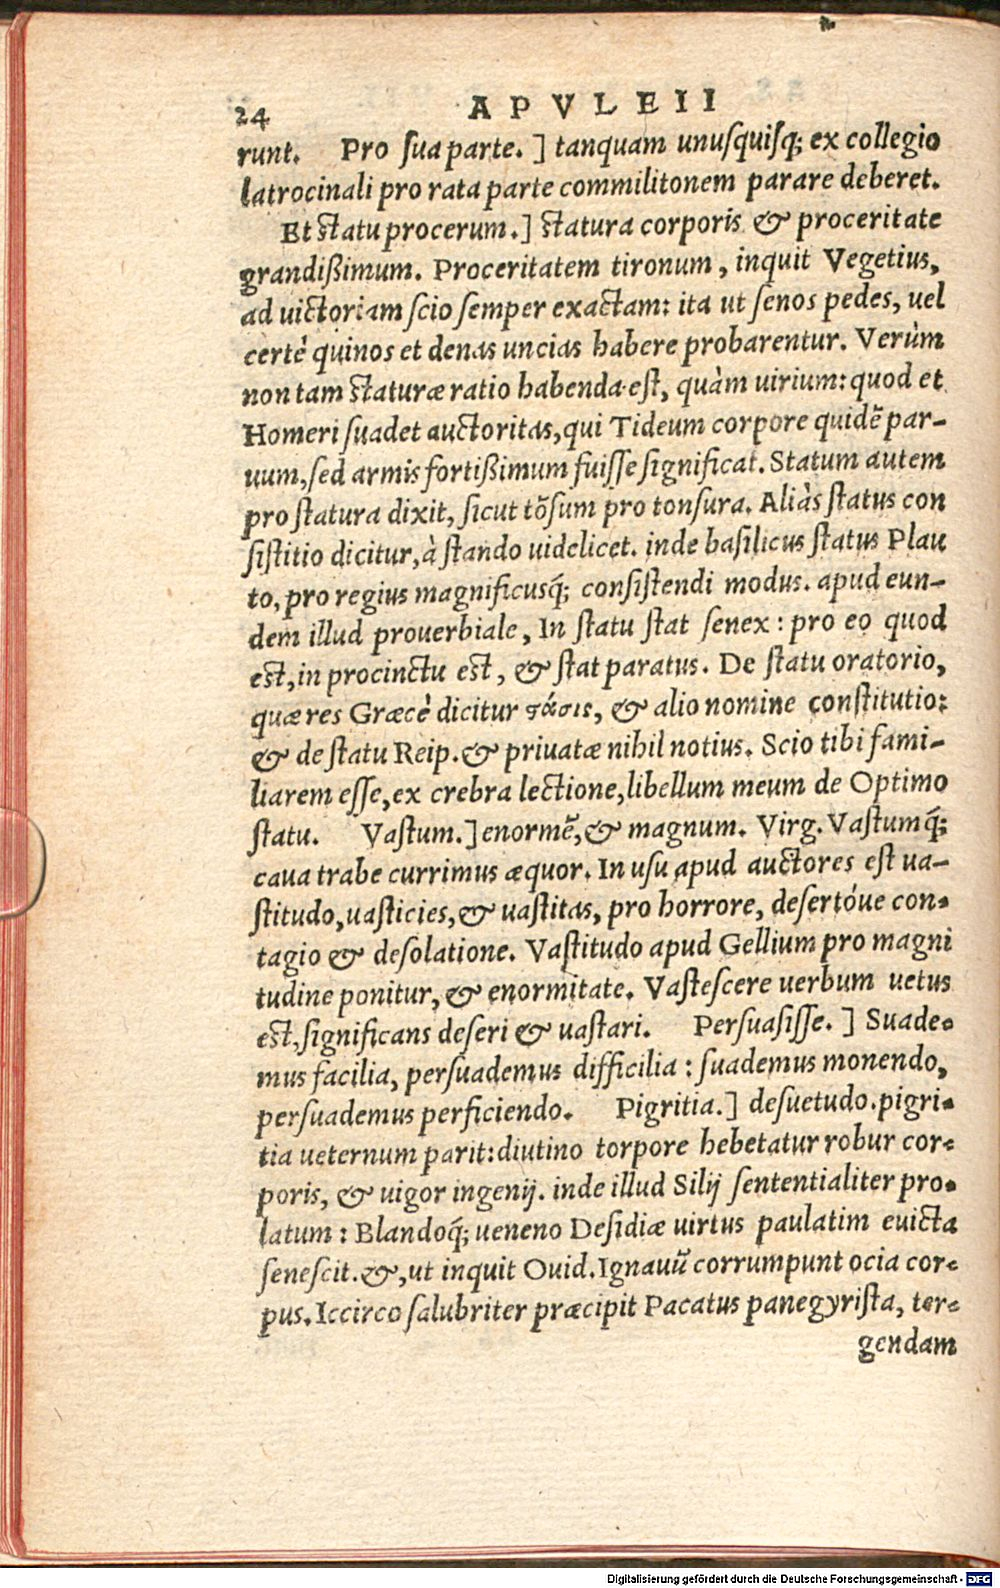 24 APVLEII
runt. Pro sua parte. ] tanquam unusquisq; ex collegio
latrocinali pro rata parte commilitonem parare deberet.
Et statu procerum. ] statura corporis & proceritate
grandißimum. Proceritatem tironum, inquit Vegetius,
ad uictoriam scio semper exactam: ita ut senos pedes, uel
certè quinos et denas uncias habere probarentur. Verùm
non tam staturæ ratio habenda est, quàm uirium: quod et
Homeri suadet auctoritas, qui Tideum corpore quidē par-
uum, sed armis fortißimum fuisse significat. Statum autem
pro statura dixit, sicut tōsum pro tonsura. Aliàs status con
sistitio dicitur, à stando uidelicet. inde basilicus status Plau
to, pro regius magnificusq́; consistendi modus. apud eun-
dem illud prouerbiale, In statu stat senex : pro eo quod
est, in procinctu est, & stat paratus. De statu oratorio,
quæ res Græcè dicitur ϛάσις, & alio nomine constitutio:
& de statu Reip. & priuatæ nihil notius. Scio tibi fami-
liarem esse, ex crebra lectione, libellum meum de Optimo
statu. Vastum. ] enormē, & magnum. Virg. Vastumq́;
caua trabe currimus æquor. In usu apud auctores est ua-
stitudo, uasticies, & uastitas, pro horrore, desertóue con-
tagio & desolatione. Vastitudo apud Gellium pro magni
tudine ponitur, & enormitate. Vastescere uerbum uetus
est, significans deseri & uastari. Persuasisse. ] Suade-
mus facilia, persuademus difficilia : suademus monendo,
persuademus perficiendo. Pigritia. ] desuetudo. pigri-
tia ueternum parit: diutino torpore hebetatur robur cor-
poris, & uigor ingenij. inde illud Silij sententialiter pro-
latum : Blandoq́; ueneno Desidiæ uirtus paulatim euicta
senescit. &, ut inquit Ouid. Ignauū corrumpunt ocia cor-
pus. Iccirco salubriter præcipit Pacatus panegyrista, ter-
gendam
Digitalisierung gefördert durch die Deutsche Forschungsgemeinschaft - DFG